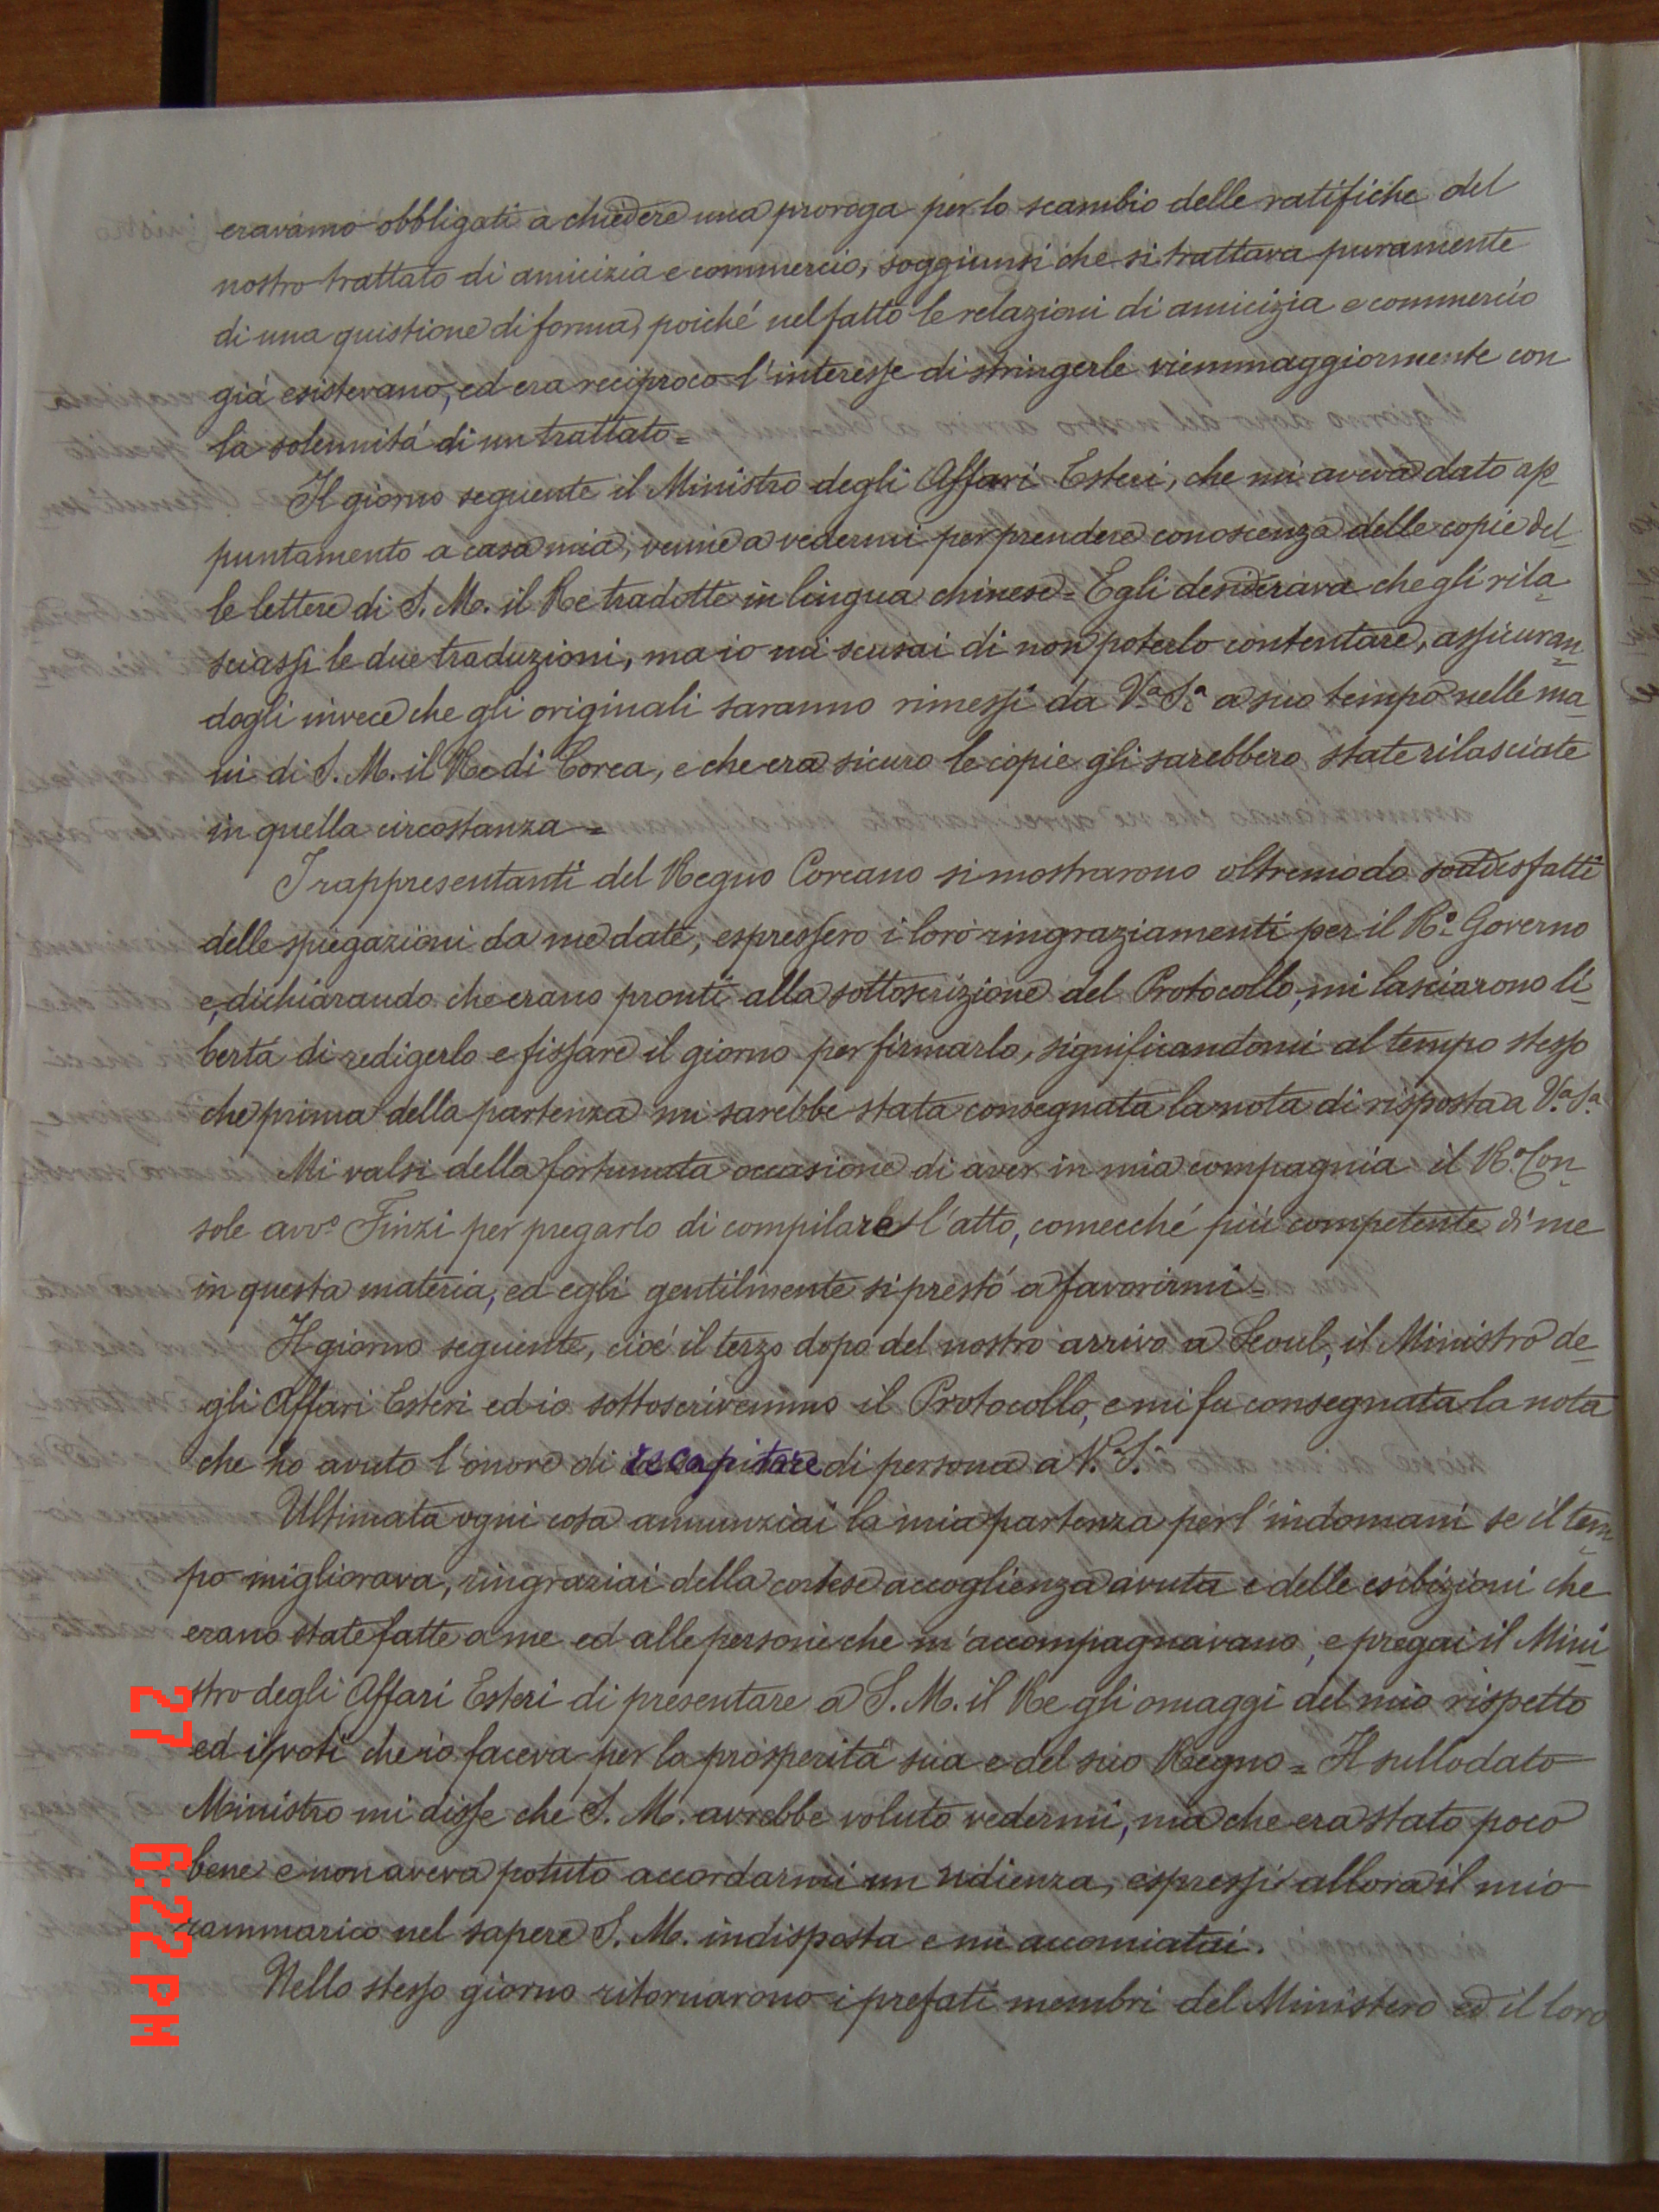 eravamo obbligati a chiedere una proroga per lo scambio delle ratifiche del
nostro trattato di amicizia e commercio, soggiunsi che si trattava puramente
di una quistione di forma, poiché nel fatto le relazioni di amicizia e commercio
giá esistevano, ed era reciproco l'interesse di stringerle viemmaggiormente con
la solennitá di un trattato =
Il giorno seguente il Ministro degli Affari Esteri, che mi aveva dato ap
puntamento a casa mia, venne a vedermi per prendere conoscenza delle copie del-
le lettere di S. M. il Re tradotte in lingua chinese = Egli desiderava che gli rila-
sciassi le due traduzioni, ma io mi scusai di non poterlo contentare, assicuran-
dogli invece che gli originali saranno rimessi da V.a S.a a suo tempo nelle ma-
ni di S. M. il Re di Corea, e che era sicuro le copie gli sarebbero state rilasciate
in quella circostanza =
I rappresentanti del Regno Coreano si mostrarono oltremodo soddisfatti
delle spiegazioni da me date, espressero i loro ringraziamenti per il R.o Governo
e, dichiarando che erano pronti alla sottoscrizione del Protocollo, mi lasciarono li-
bertá di redigerlo e fissare il giorno per firmarlo, significandomi al tempo stesso
che prima della partenza mi sarebbe stata consegnata la nota di risposta a V.a S.a
Mi valsi della fortunata occasione di aver in mia compagnia il R.o Con-
sole avv.o Finzi per pregarlo di compilare l'atto, comecché piú competente di me
in questa materia, ed egli gentilmente si prestó a favorirmi =
Il giorno seguente, cioé il terzo dopo del nostro arrivo a Seoul, il Ministro de-
gli Affari Esteri ed io sottoscrivemmo il Protocollo, e mi fu consegnata la nota
che ho avuto l'onore di recapitare di persona a V.a S.a
Ultimata ogni cosa annunziai la mia partenza per l'indomani se il tem-
po migliorava, ringraziai della cortese accoglienza avuta e delle esibizioni che
erano state fatte a me ed alle persone che m'accompagnavano, e pregai il Mini-
stro degli Affari Esteri di presentare a S. M. il Re gli omaggi del mio rispetto
ed i voti che io faceva per la prosperitá sua e del suo Regno = Il sullodato
Ministro mi disse che S. M. avrebbe voluto vedermi, ma che era stato poco
bene e non aveva potuto accordarmi un udienza, espressi allora il mio
rammarico nel sapere S. M. indisposta e mi accomiatai.
Nello stesso giorno ritornarono i prefati membri del Ministero ed il loro
27 6:22 PM